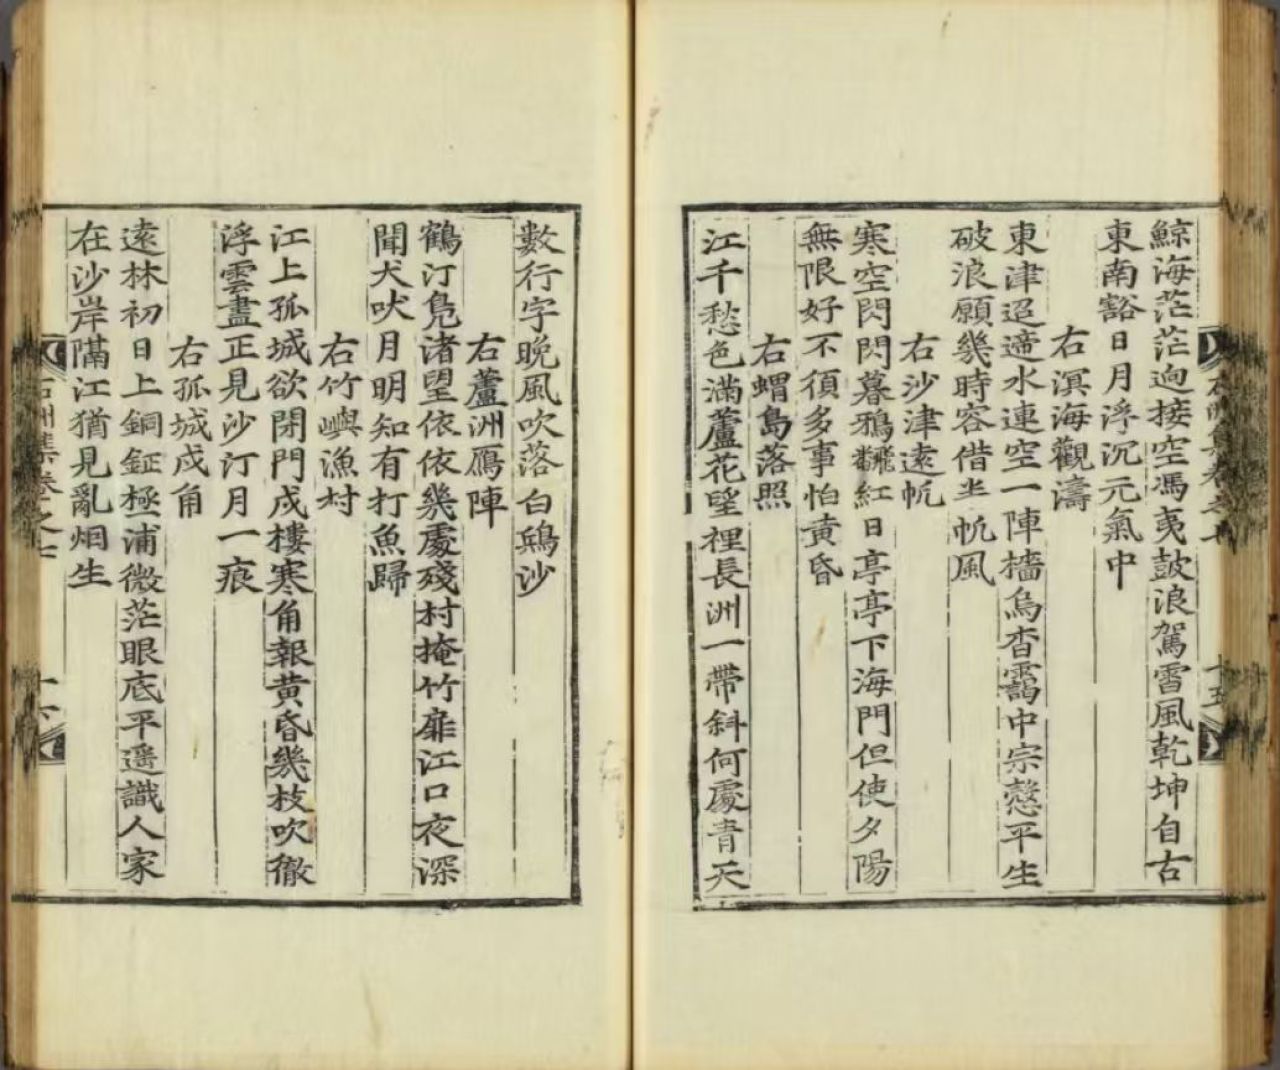 鯨海茫茫逈接空馮夷鼓浪駕雷風乾坤自古
東南豁日月浮沉元氣中
右溟海觀濤
東津迢遰水連空一陣檣烏杳靄中宗慤平生
破浪願幾時容借半帆風
右沙津遠帆
寒空閃閃暮鴉翻紅日亭亭下海門但使夕陽
無限好不須多事怕黃昏
右蝟島落照
江千愁色滿蘆花望裡長洲一帶斜何處青天
數行字晚風吹落白鷗沙
右蘆洲鴈陣
鶴汀鳧渚望依依幾處殘村掩竹扉江口夜深
聞犬吠月明知有打魚歸
右竹嶼漁村
江上孤城欲閉門戍樓寒角報黃昏幾枝吹徹
浮雲盡正見沙汀月一痕
右孤城戍角
遠林初日上銅鉦極浦微茫眼底平遥識人家
在沙岸隔江猶見亂烟生
石洲集卷之七